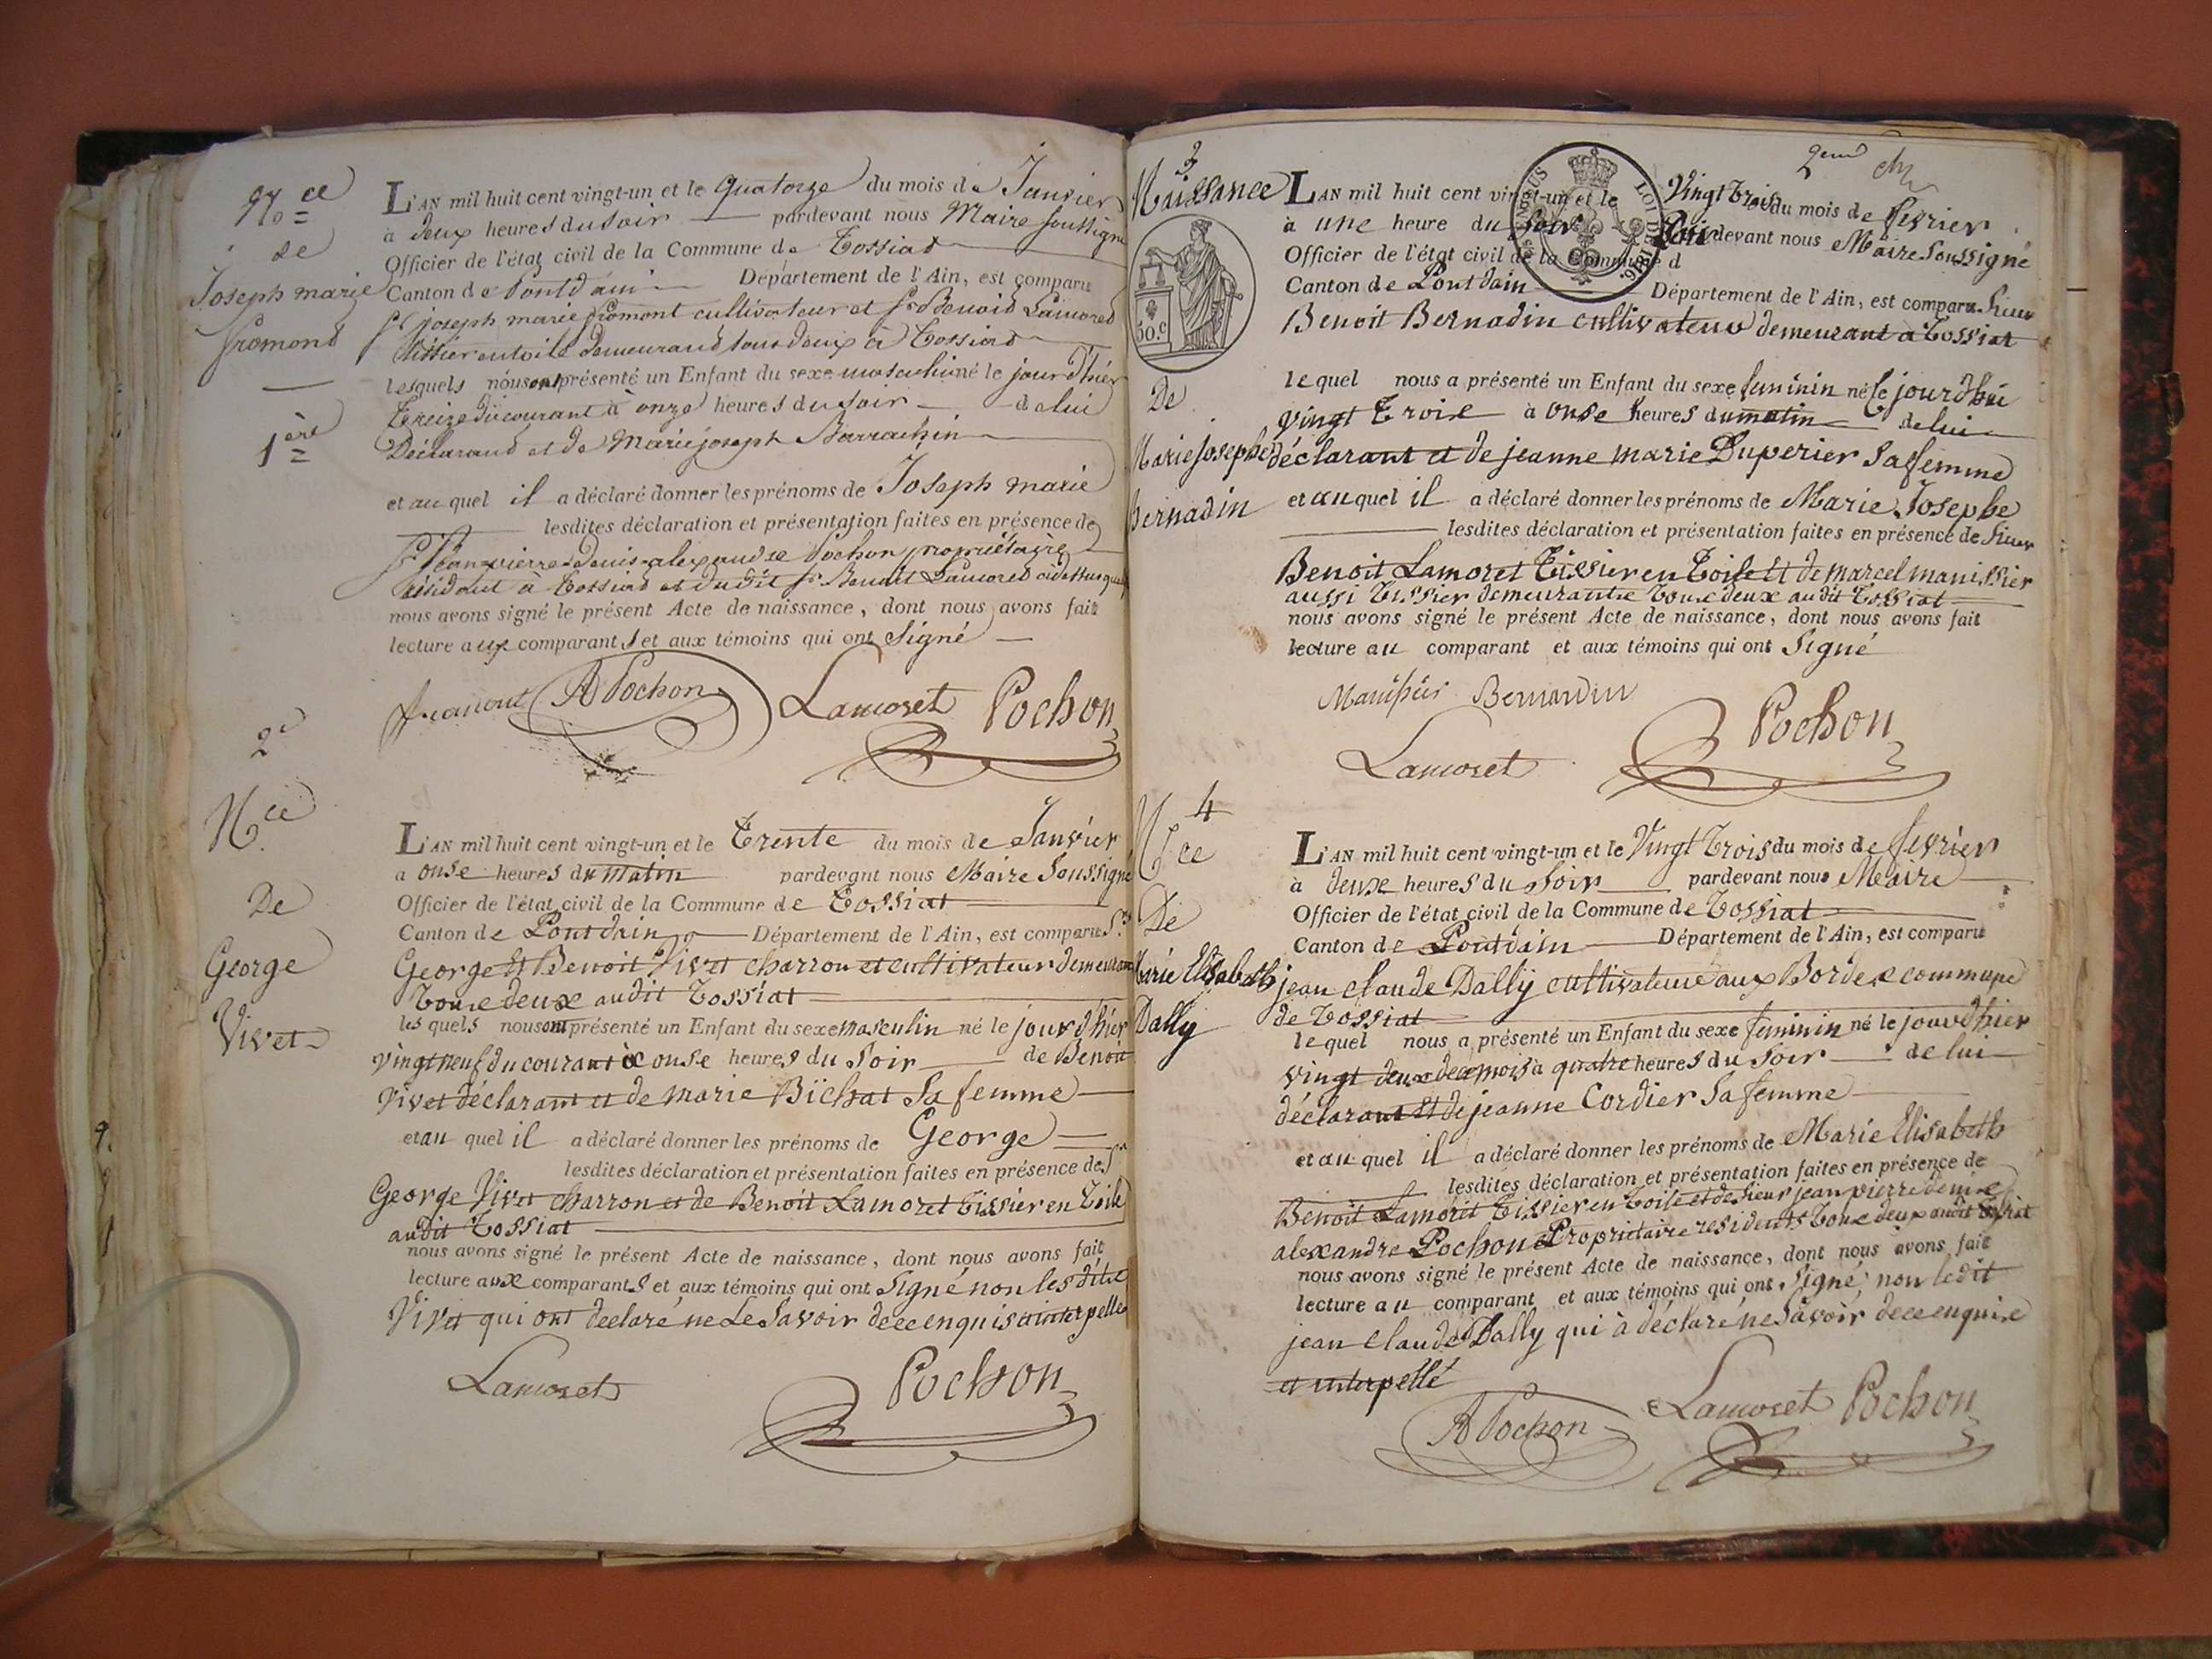 Nce
de
Joseph marie
fromond
1ère
L'AN mil huit cent vingt-un et le quatorze du mois de Janvier
à deux heures du soir pardevant nous Maire soussigné
Officier de l'état civil de la Commune de Tossiat
Canton de Pontdain Département de l'Ain, est comparu
Sr joseph marie fromont cultivateur et Sr Benoit Lamoret
tissier en toile demeurand tous deux à Tossiat
lesquels nous ont présenté un Enfant du sexe masculin né le jour d'hier
treize du courant à onze heures du soir de lui
Déclarand et de Marie joseph Barrachin
et au quel il a déclaré donner les prénoms de Joseph marie
lesdites déclaration et présentation faites en présence de
Sr Jean pierre denis alexandre Pochon propriétaire
résidant à Tossiat et du dit Sr Benoit Lamoret
nous avons signé le présent Acte de naissance, dont nous avons fait
lecture aux comparants et aux témoins qui ont signé
fromont A Pochon Lamoret Pochon
2e
Nce
De
George
Vivet
L'AN mil huit cent vingt-un et le Trente du mois de Janvier
a onse heures du matin pardevant nous Maire Soussigné
Officier de l'état civil de la Commune de Tossiat
Canton de Pontdain Département de l'Ain, est comparu Sr
George Et Benoit Vivet charron et cultivateur demeurant
Touse deux audit Tossiat
les quels nous ont présenté un Enfant du sexe masculin né le jour d'hier
vingt neuf du courant à onse heures du Soir de Benoit
Vivet déclarant et de marie Bichat Sa femme
et au quel il a déclaré donner les prénoms de George
lesdites déclaration et présentation faites en présence de Sr
George Vivet charron et de Benoit Lamoret Tissier en Toile
audit Tossiat
nous avons signé le présent Acte de naissance, dont nous avons fait
lecture aux comparants et aux témoins qui ont Signé non les dits
Vivet qui ont declaré ne Le Savoir de ce enquis et interpellé
Lamoret Pochon
3
Naissance
50.c
De
Marie josephe
Bernadin
2eme
LOI DE 1816.
L'AN mil huit cent vingt-un et le Vingt Trois du mois de fevrier
à une heure du Soir Pardevant nous Maire Soussigné
Officier de l'état civil de la Commune d
Canton de Pontdain Département de l'Ain, est comparu Sieur
Benoit Bernadin cultivateur demeurant à Tossiat
le quel nous a présenté un Enfant du sexe feminin né le jourd'hui
vingt Trois à onse heures du matin de lui
déclarant et de jeanne marie Duperier Sa femme
et au quel il a déclaré donner les prénoms de Marie Josephe
lesdites déclaration et présentation faites en présence de Sieur
Benoit Lamoret Tissier en Toile Et de marcel manissier
aussi Tissier demeurante Touse deux audit Tossiat
nous avons signé le présent Acte de naissance, dont nous avons fait
lecture au comparant et aux témoins qui ont Signé
Manissier Bernardin
Lamoret Pochon
4
Nce
De
Marie Elisabeth
Dally
L'AN mil huit cent vingt-un et le Vingt Trois du mois de fevrier
à deuxe heures du Soir pardevant nous Maire
Officier de l'état civil de la Commune de Tossiat
Canton de Pontdain Département de l'Ain, est comparu
jean claude Dally cultivateur aux Bordes commune
de Tossiat
le quel nous a présenté un Enfant du sexe feminin né le jour d'hier
vingt deux de ce mois à quatre heures du Soir de lui
déclarant Et de jeanne Cordier Sa femme
et au quel il a déclaré donner les prénoms de Marie Elisabeth
lesdites déclaration et présentation faites en présence de
Benoit Lamoret Tissier en Toile et de Sieur jean pierre denis
alexandre Pochon Proprietaire residents Touse deux audit Tossiat
nous avons signé le présent Acte de naissance, dont nous avons fait
lecture au comparant et aux témoins qui ont Signé non ledit
jean claude Dally qui à déclaré ne Savoir de ce enquise
et interpellé
A Pochon Lamoret Pochon